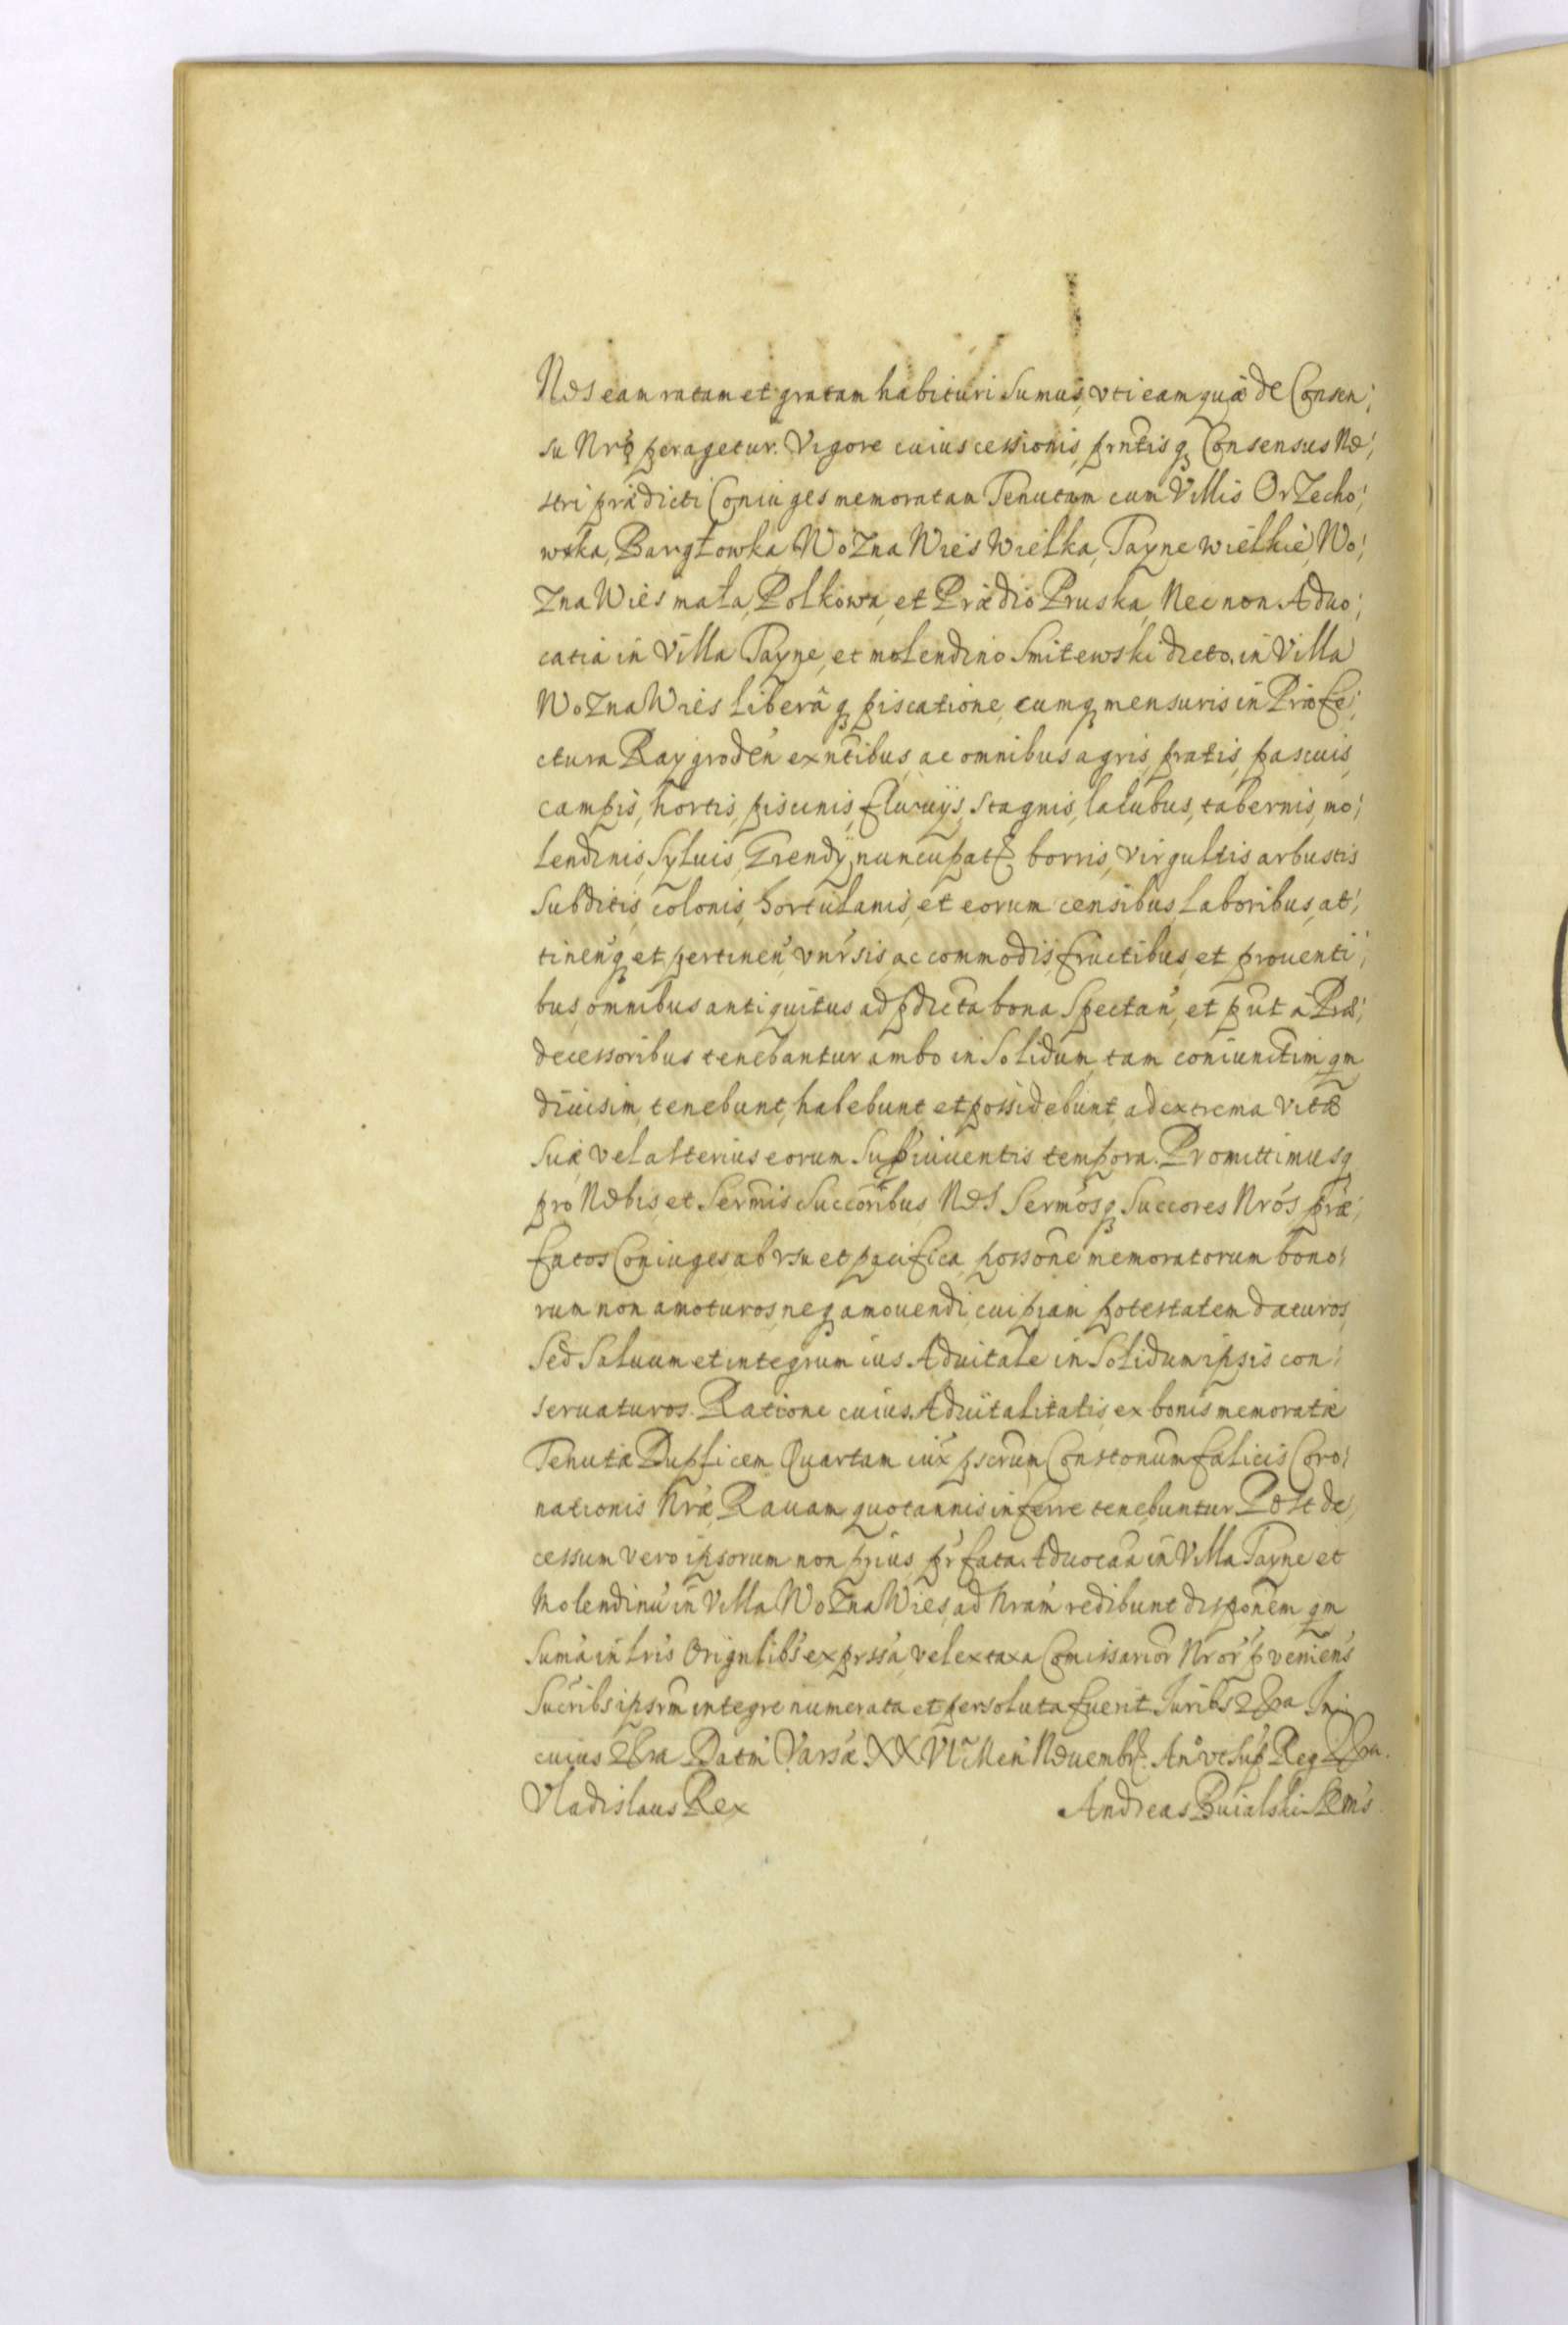 Nos eam ratam et gratam habituri sumus, vti eam quæ de Consen:
su Nrõ peragetur. Vigore cuius cessionis, prntisq Consensus No:
stri prædicti Coniuges memoratam Tenutam cum Villis OrZecho:
wska, Bargłowka, WoZna Wies Wielka, Tayne wielkie, Wo:
Zna Wies mała, Polkowa, et Prædio Pruska, Nec non Aduo:
catia in Villa Tayne, et molendino Smitewski dicto, in Villa
WoZna Wies liberâq piscatione, cumq mensuris in Præfe:
ctura Raygroden exntibus, ac omnibus agris, pratis, pascuis,
campis, hortis, piscinis, fluuijs, stagnis, lacubus, tabernis, mo:
lendinis, Syluis, Grendÿ nuncupat, borris, virgultis arbustis
Subditis, colonis, hortulanis, et eorum censibus, laboribus, at:
tinen'q et pertinen', vnr'sis, ac commodis, fructibus, et prouenti:
bus, omnibus antiquitus, ad pdicta bona Spectan', et put a Præ:
decessoribus tenebantur ambo in Solidum, tam coniunctim qm
diuisim, tenebunt, habebunt et possidebunt, ad extrema vitæ
Suæ vel alterius eorum Supuiuentis tempora. Promittimusq
pro Nobis, et Sermis Succoribus Nos Sermosq Succores Nros præ:
fatos Coniuges, ab vsu et pacifica possone memoratorum bono:
rum non amoturos, neq amouendi, cuipiam potestatem daturos,
Sed Saluum et integrum ius Aduitale in Solidum ipsis con:
seruaturos. Ratione cuius Aduitalitatis, ex bonis memoratæ
Tenutæ Duplicem Quartam iux pscrum Constonum fælicis Coro:
nationis Nræ, Rauam quotannis inferre tenebuntur. Post de:
cessum vero ipsorum non prius, pr'fata Aduocaa in Villa Tayne et
Molendinu' in Villa WoZna Wies, ad Nram redibunt disponem qm
Suma in lris Orignlibs exprssa, vel ex taxa Comissarior Nror pveniens
Sucribs ipsrm integre numerata et persoluta fuerit Juribs In
cuius Datm Varsæ XXVI Men Nouembr. Ano vt sup Reg
Vladislaus Rex Andreas Buialski